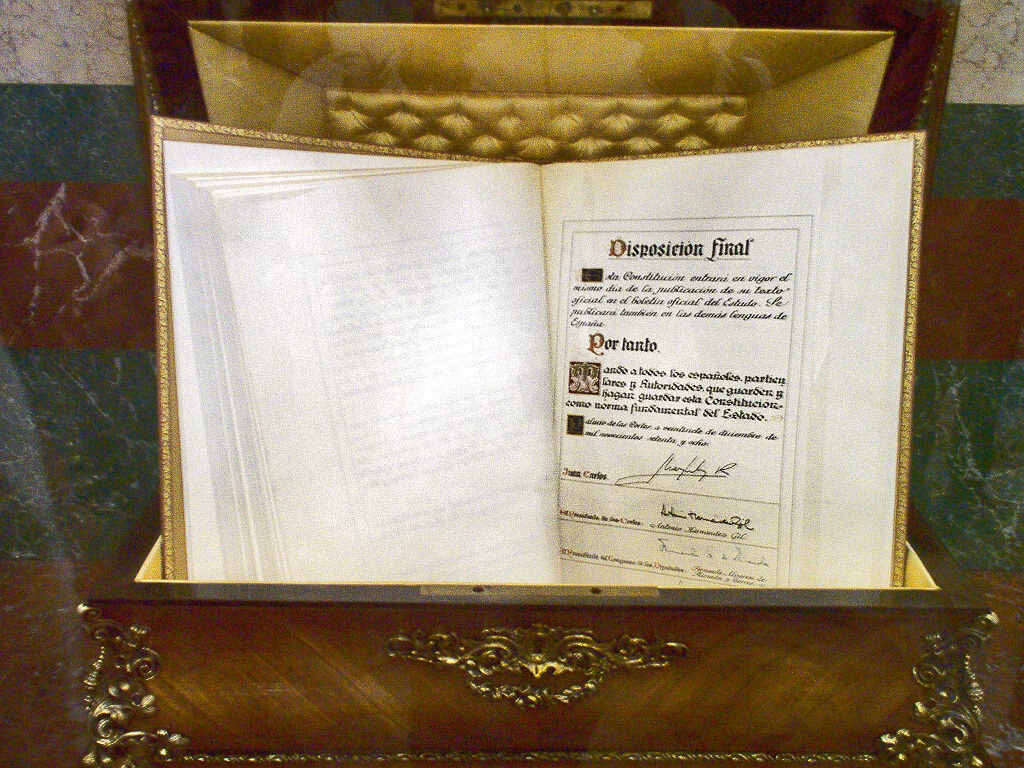 Disposición final
Esta Constitución entrará en vigor el
mismo día de la publicación de su texto
oficial en el boletín oficial del Estado. Se
publicará también en las demás lenguas de
España.
Por tanto,
Mando a todos los españoles, particu
lares y Autoridades, que guarden y
hagan guardar esta Constitución
como norma fundamental del Estado.
Palacio de las Cortes, a veintisiete de diciembre de
mil novecientos setenta y ocho.
Juan Carlos
El Presidente de las Cortes Antonio Hernández Gil
El Presidente del Congreso de los Diputados Fernando Álvarez de
Miranda y Torres